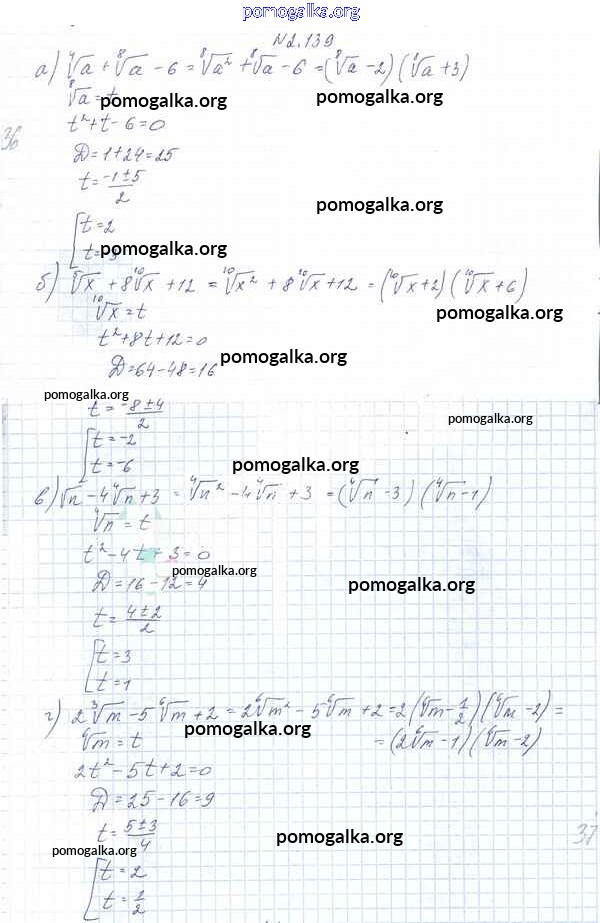 pomogalka.org
№2.139
а) ⁴√a + ⁸√a - 6 = ⁸√a² + ⁸√a - 6 = (⁸√a - 2) (⁸√a + 3)
⁸√a = t
pomogalka.org pomogalka.org
t² + t - 6 = 0
36
D = 1 + 24 = 25
t = (-1 ± 5)/2
pomogalka.org
t = 2
t = -3
pomogalka.org
б) ⁵√x + 8 ¹⁰√x + 12 = ¹⁰√x² + 8 ¹⁰√x + 12 = (¹⁰√x + 2) (¹⁰√x + 6)
¹⁰√x = t
pomogalka.org
t² + 8t + 12 = 0
pomogalka.org
D = 64 - 48 = 16
pomogalka.org
t = (-8 ± 4)/2
pomogalka.org
t = -2
t = -6
pomogalka.org
в) √n - 4 ⁴√n + 3 = ⁴√n² - 4 ⁴√n + 3 = (⁴√n - 3) (⁴√n - 1)
⁴√n = t
t² - 4t + 3 = 0
pomogalka.org
D = 16 - 12 = 4
pomogalka.org
t = (4 ± 2)/2
t = 3
t = 1
г) 2 ³√m - 5 ⁶√m + 2 = 2 ⁶√m² - 5 ⁶√m + 2 = 2 (⁶√m - 1/2) (⁶√m - 2) =
pomogalka.org
⁶√m = t
= (2 ⁶√m - 1) (⁶√m - 2)
2t² - 5t + 2 = 0
D = 25 - 16 = 9
t = (5 ± 3)/4
pomogalka.org
37
pomogalka.org
t = 2
t = 1/2